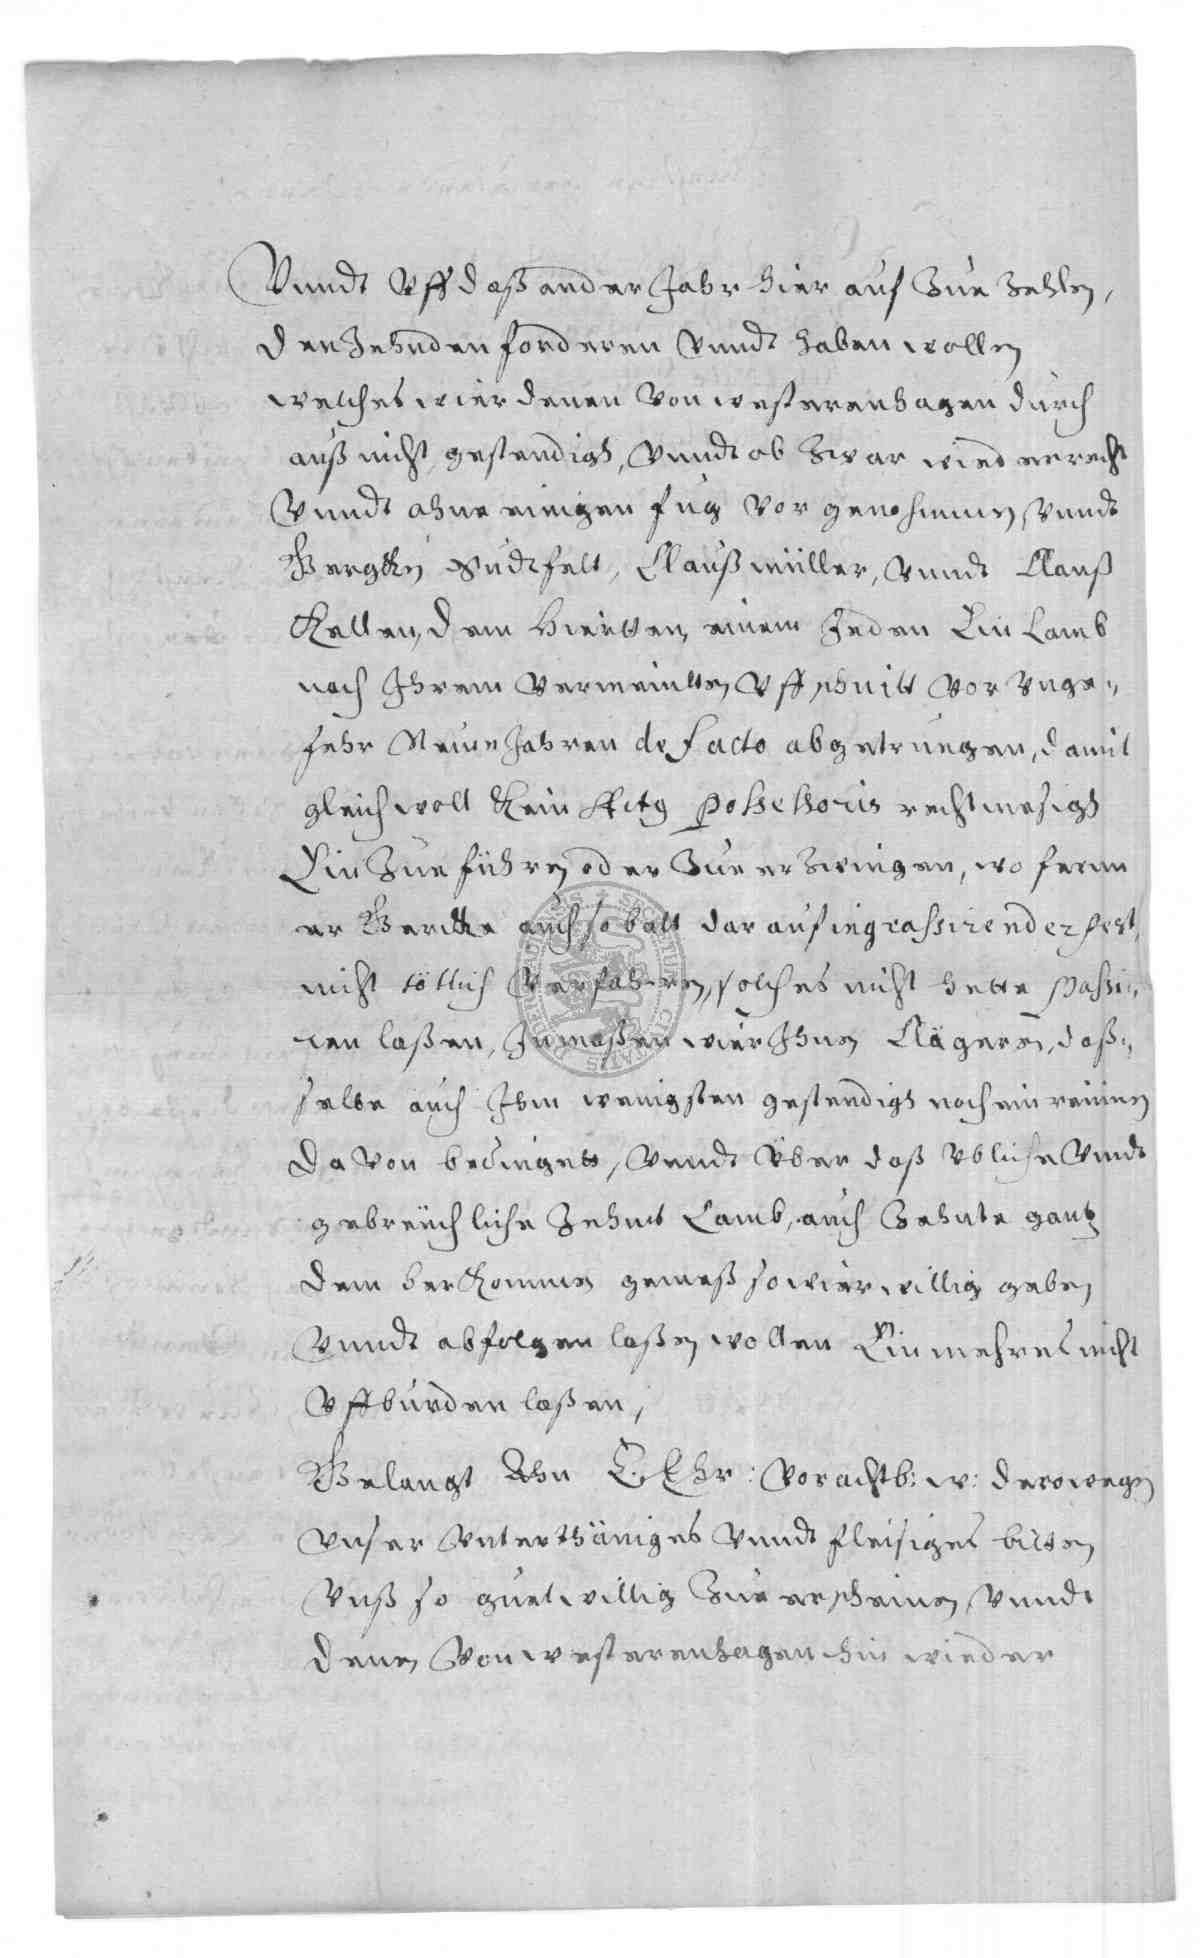 Vnndt Vff daß ander Jahr hier auf Zue Zehlen,
den Zehnden forderen Vnndt haben wollen
welches wier denen Von westerenhagen durch
auß nicht gestendigh, Vnndt ob Zwar wieder recht
Vnndt ohne einigen fug Vor genohmmen, Vnndt
Sudtfelt, Clauß müller, Vnndt Clauß
Kellen, dem Hiertten, einem Jeden Ein Lamb
nach Ihrem Vermeintten Vffschnitt Vor Vnge-,
fehr Neun Jahren de facto abgetrungen, damit
gleich woll Kein possessoris rechtmesigh
Ein Zue führen oder Zue erZwingen, wo ferne
er auch so balt darauf ingrassirender pest,
nicht tötlich Verfahren, solches nicht hette passi-,
ren laßen, Inmaßen wier Ihnen Clägeren, daß-,
selbe auch Ihm wenigsten gestendigh noch ein reumen
da Von bedingett, Vnndt Vber daß Vbliche Vndt
gebreüchliche Zehnt Lamb, auch Zehnte gantz
dem herKommen gemeß so wier willig geben
Vnndt abfolgen laßen wollen Ein mehres nicht
Vffburden laßen,
Gelangt Ahn E. Ehr: Vorachtb: w: derowegen
Vnser Vnterthäniges Vnndt fleisiges bitten
Vnß so guetwillig Zue erscheinen Vnndt
denen Von westerenhagen hin wieder